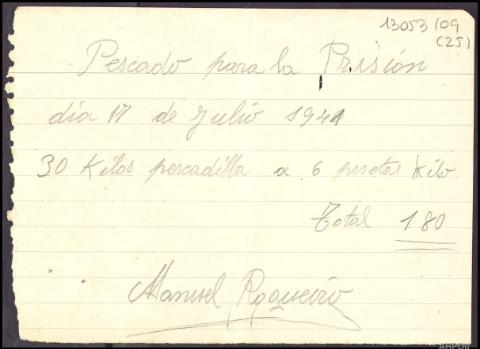 13053/09
(25)
Pescado para la Prisión
día 17 de Julio 1941
30 Kilos pescadilla a 6 pesetas kilo
Total 180
Manuel